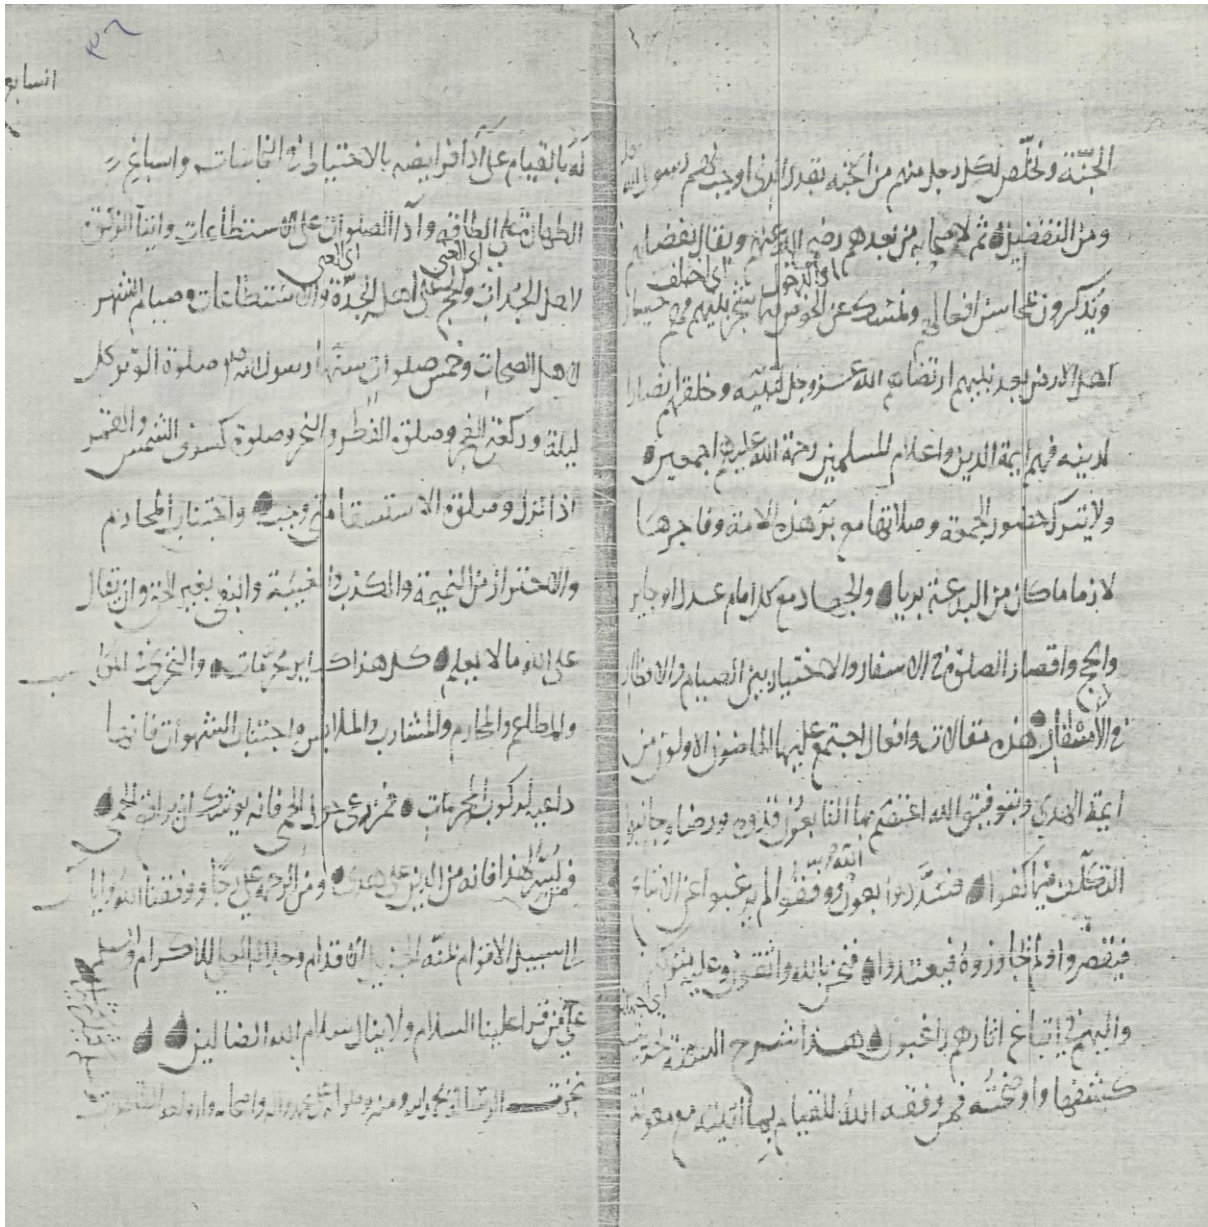 الجنة ونخلص لكل رجل منهم من المحبة بقدر الذي اوجب لهم رسول الله
ومن التفضيل ثم لاصحابه من بعدهم رضي الله عنهم ويقال بفضلهم
اي الدخول اي اختلف
ويذكرون بمحاسن افعالهم ونمسك عن الخوض فيما شجر بينهم فهم خيار
اهل الارض بعد نبيهم ارتضاهم الله عز وجل لنبيه وخلقهم انصارا
لدينه فهم ايمة الدين واعلام المسلمين رحمة الله عليهم اجمعين
ولا يترك حضور الجمعة وصلاتها مع بر هذه الامة وفاجرها
لازما ما كان من البدعة بريا والجهاد مع كل امام عدل او جاير
والحج واقصار الصلوة في الاسفار والاختيار بين الصيام والافطار
في الاسفار هذه مقالات وافعال اجتمع عليها الماضون الاولون من
ايمة الهدي وبتوفيق الله اعتصم بها التابعون قدوة ورضا وجانبوا
التكلف فيما كفوا فسددوا بعون الله ووفقوا لم يرغبوا عن الاتباع
فيقصروا ولم يجاوزوه فيعتدوا فنحن بالله واثقون وعليه متوكلون
واليه في اتباع اثارهم راغبون هذا شرح السنة تحريت
كشفها واوضحته فمن وفقه الله للقيام بما ابنته مع معونته
٣٦
السابع
له بالقيام على آداء فرايضه بالاحتياط في النجاسات واسباغ
الطهارة على الطاقة وآداء الصلوات على الاستطاعات وايتاء الزكوة
اي الغني اي الغني
لاهل الجدات والحج على اهل الجدة والاستطاعات وصيام الشهر
لاهل الصحات وخمس صلوات سنها رسول الله صلوة الوتر كل
ليلة وركعتي الفجر وصلوة الفطر والنحر وصلوة كسوف الشمس والقمر
اذا نزل وصلوة الاستسقا متى وجب واجتناب المحارم
والاحتراز من النميمة والكذب والغيبة والبغي بغير الحق وان يقال
على الله ما لا يعلم كل هذا كباير محرمات والتحري في المكاسب
والمطاعم والمحارم والمشارب والملابس واجتناب الشهوات فانها
داعية لركوب المحرمات فمن رعى حول الحمى فانه يوشك ان يواقع الحمى
فمن يسر لهذا فانه من الدين على هدى ومن الرحمة على رجا ووفقنا الله واياك
الى سبيله الاقوم بمنه الجزيل الاقدم وجلاله العلي الاكرم والسلم
على من قرا علينا السلام ولا ينال سلام الله الضالين
نجزت الرسالة بحمد الله ومنه وصلواته على محمد واله واصحابه وازواجه